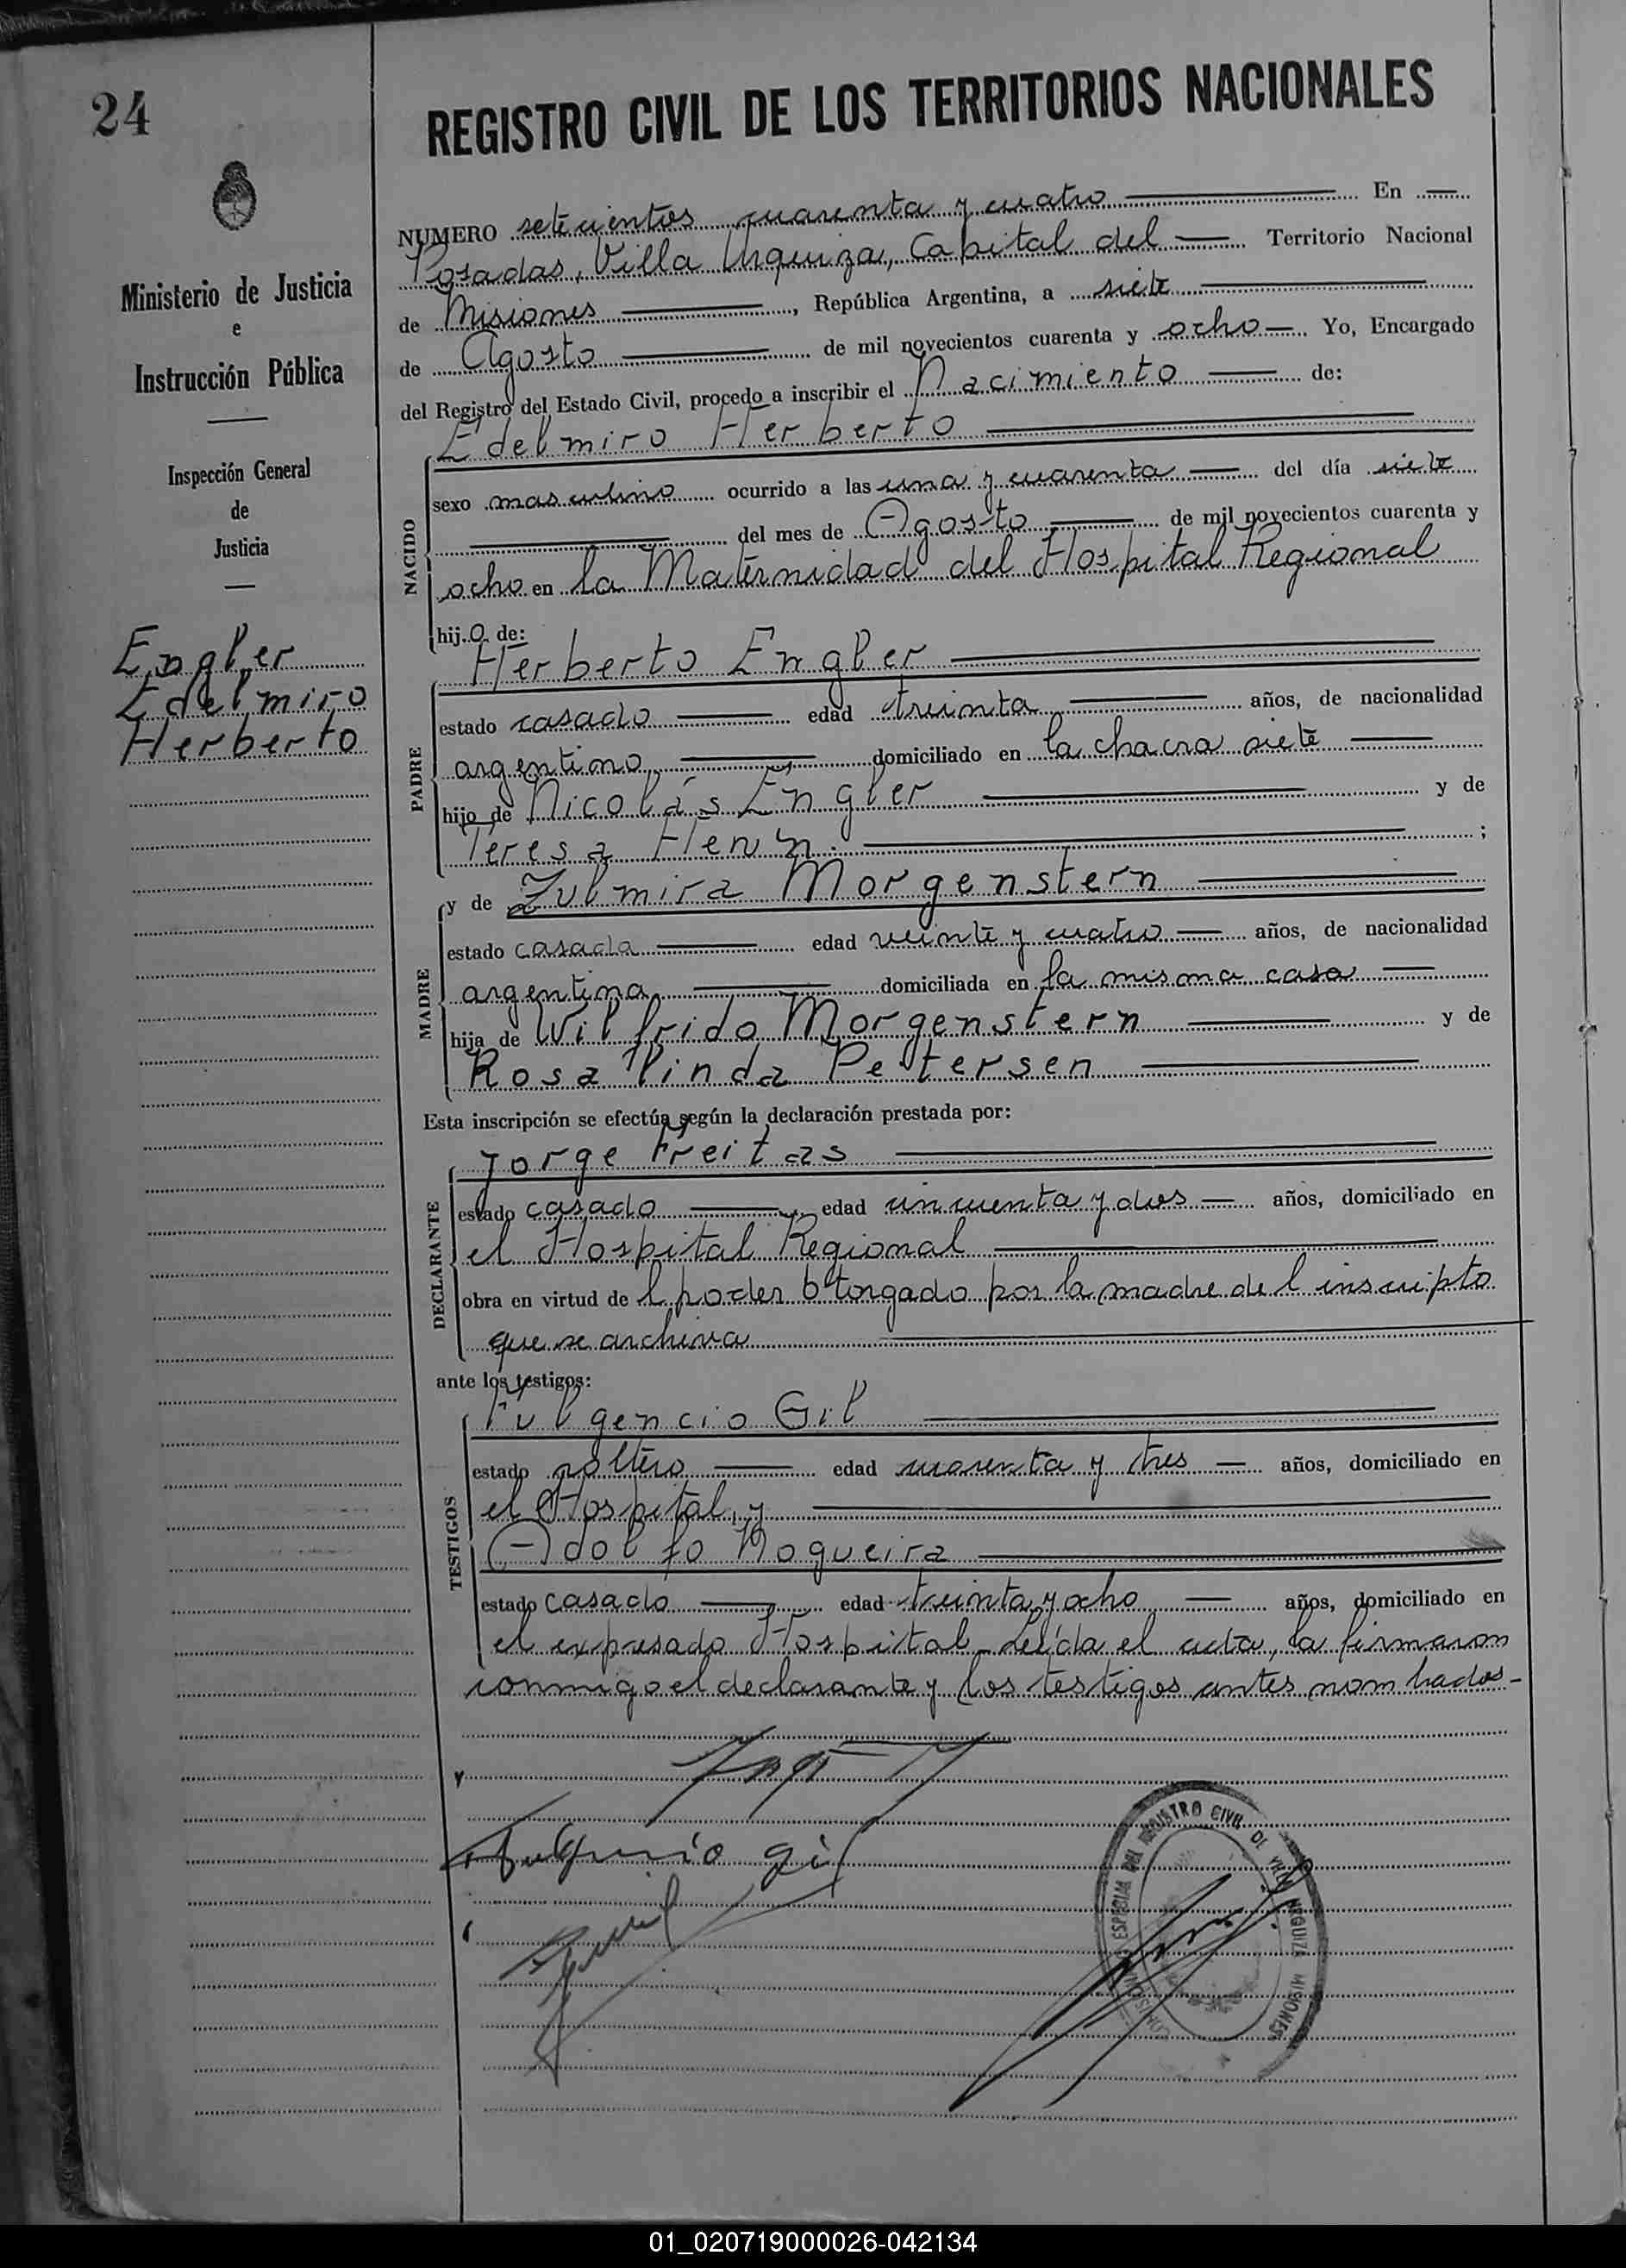 24
REGISTRO CIVIL DE LOS TERRITORIOS NACIONALES
Ministerio de Justicia
e
Instrucción Pública
Inspección General
de
Justicia
Engler
Edelmiro
Herberto
NUMERO setecientos cuarenta y cuatro En
Posadas, Villa Urquiza, Capital del Territorio Nacional
de Misiones, República Argentina, a siete
de Agosto de mil novecientos cuarenta y ocho Yo, Encargado
del Registro del Estado Civil, procedo a inscribir el Nacimiento de:
Edelmiro Herberto
NACIDO
sexo masculino ocurrido a las una y cuarenta del día siete
del mes de Agosto de mil novecientos cuarenta y
ocho en la Maternidad del Hospital Regional
hijo de:
PADRE
Herberto Engler
estado casado edad treinta años, de nacionalidad
argentino domiciliado en la chacra siete
hijo de Nicolás Engler y de
Teresa ;
MADRE
y de Zulmira Morgenstern
estado casada edad veinte y cuatro años, de nacionalidad
argentina domiciliada en la misma casa
hija de Wilfrido Morgenstern y de
Rosalinda Petersen
Esta inscripción se efectúa según la declaración prestada por:
DECLARANTE
Jorge Freitas
estado casado edad cincuenta y dos años, domiciliado en
el Hospital Regional
obra en virtud del poder otorgado por la madre del inscripto
que se archiva
ante los testigos:
TESTIGOS
Fulgencio Gil
estado soltero edad cuarenta y tres años, domiciliado en
el Hospital, y
Adolfo Nogueira
estado casado edad treinta y ocho años, domiciliado en
el expresado Hospital - Leída el acta, la firmaron
conmigo el declarante y los testigos antes nombrados -
Fulgencio Gil
ESPECIAL DEL REGISTRO CIVIL DE VILLA URQUIZA MISIONES
01_020719000026-042134